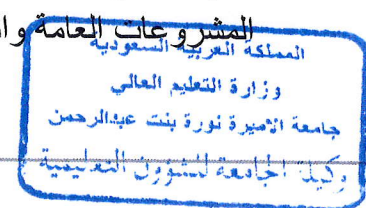 المشروعات العامة وا
المملكة العربية السعودية
وزارة التعليم العالي
جامعة الأميرة نورة بنت عبدالرحمن
وكيلة الجامعة للشؤون التعليمية